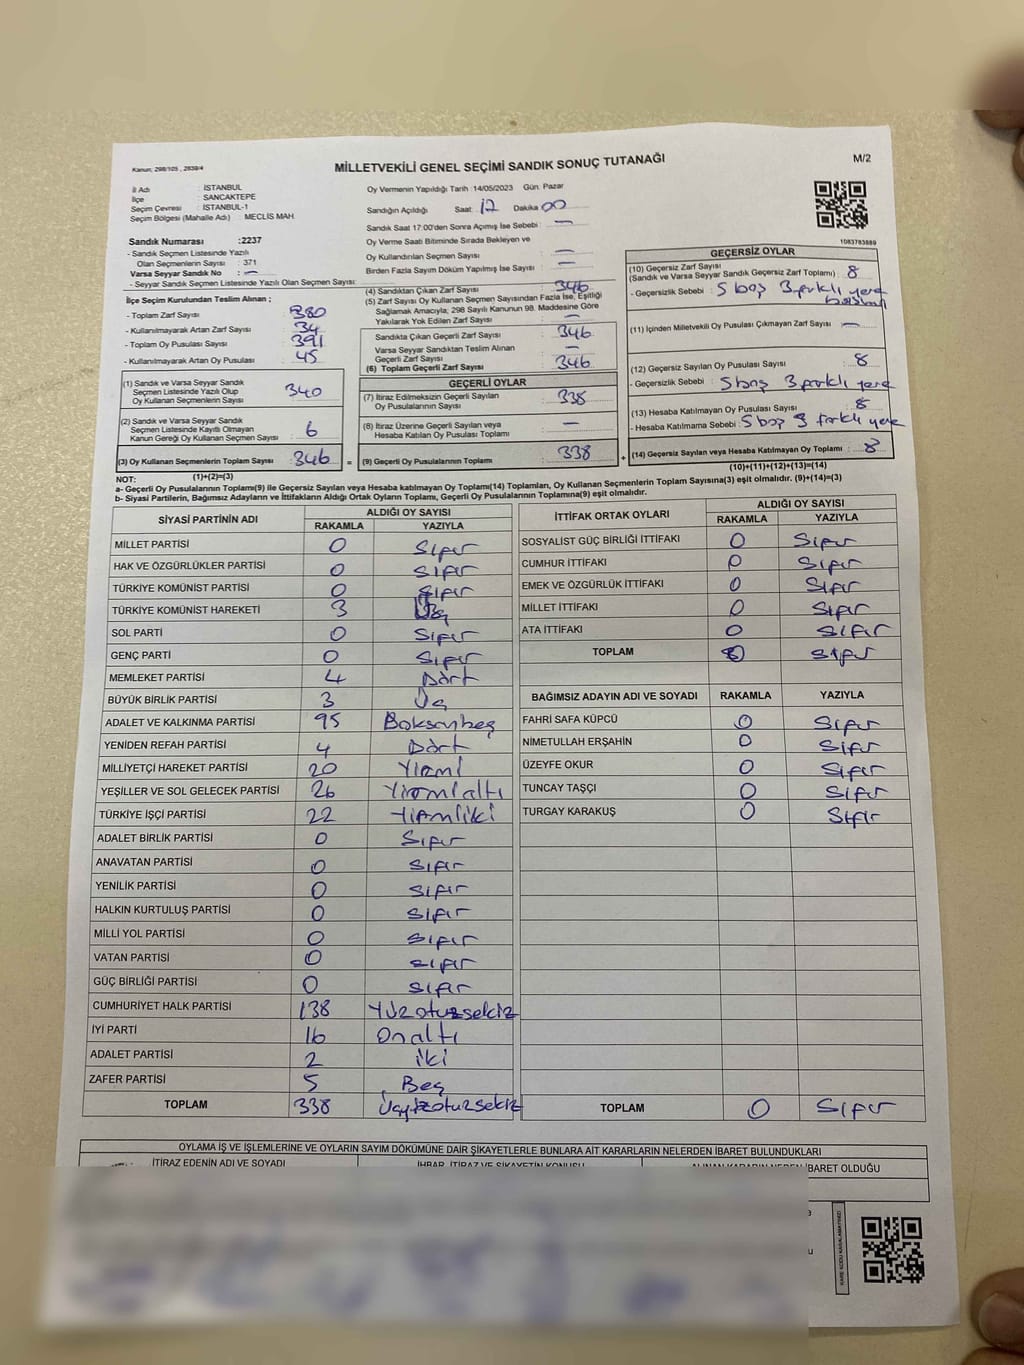 Kanun; 298/105 , 2839/4
MİLLETVEKİLİ GENEL SEÇİMİ SANDIK SONUÇ TUTANAĞI
M/2
İl Adı : İSTANBUL
İlçe : SANCAKTEPE
Seçim Çevresi : İSTANBUL-1
Seçim Bölgesi (Mahalle Adı) : MECLİS MAH.
Sandık Numarası :2237
- Sandık Seçmen Listesinde Yazılı
Olan Seçmenlerin Sayısı : 371
Varsa Seyyar Sandık No : —
- Seyyar Sandık Seçmen Listesinde Yazılı Olan Seçmen Sayısı:
Oy Vermenin Yapıldığı Tarih :14/05/2023 Gün: Pazar
Sandığın Açıldığı Saat: 17 Dakika 00
Sandık Saat 17:00'den Sonra Açımış İse Sebebi : —
Oy Verme Saati Bitiminde Sırada Bekleyen ve
Oy Kullandırılan Seçmen Sayısı : —
Birden Fazla Sayım Döküm Yapılmış İse Sayısı : —
1083783889
İlçe Seçim Kurulundan Teslim Alınan ;
- Toplam Zarf Sayısı : 380
- Kullanılmayarak Artan Zarf Sayısı : 34
- Toplam Oy Pusulası Sayısı : 391
- Kullanılmayarak Artan Oy Pusulası : 45
(1) Sandık ve Varsa Seyyar Sandık
Seçmen Listesinde Yazılı Olup
Oy Kullanan Seçmenlerin Sayısı : 340
(2) Sandık ve Varsa Seyyar Sandık
Seçmen Listesinde Kayıtlı Olmayan
Kanun Gereği Oy Kullanan Seçmen Sayısı : 6
(3) Oy Kullanan Seçmenlerin Toplam Sayısı : 346
(1)+(2)=(3)
(4) Sandıktan Çıkan Zarf Sayısı : 346
(5) Zarf Sayısı Oy Kullanan Seçmen Sayısından Fazla İse, Eşitliği
Sağlamak Amacıyla; 298 Sayılı Kanunun 98. Maddesine Göre
Yakılarak Yok Edilen Zarf Sayısı : —
Sandıkta Çıkan Geçerli Zarf Sayısı : 346
Varsa Seyyar Sandıktan Teslim Alınan
Geçerli Zarf Sayısı : —
(6) Toplam Geçerli Zarf Sayısı : 346
GEÇERLİ OYLAR
(7) İtiraz Edilmeksizin Geçerli Sayılan
Oy Pusulalarının Sayısı : 338
(8) İtiraz Üzerine Geçerli Sayılan veya
Hesaba Katılan Oy Pusulası Toplamı : —
= (9) Geçerli Oy Pusulalarının Toplamı : 338
GEÇERSİZ OYLAR
(10) Geçersiz Zarf Sayısı
(Sandık ve Varsa Seyyar Sandık Geçersiz Zarf Toplamı) : 8
- Geçersizlik Sebebi : 5 boş 3 farklı yere
(11) İçinden Milletvekili Oy Pusulası Çıkmayan Zarf Sayısı : —
(12) Geçersiz Sayılan Oy Pusulası Sayısı : 8
- Geçersizlik Sebebi : 5 boş 3 farklı yere
(13) Hesaba Katılmayan Oy Pusulası Sayısı : 8
- Hesaba Katılmama Sebebi : 5 boş 3 farklı yere
+ (14) Geçersiz Sayılan veya Hesaba Katılmayan Oy Toplamı : 8
(10)+(11)+(12)+(13)=(14)
NOT:
a- Geçerli Oy Pusulalarının Toplamı(9) ile Geçersiz Sayılan veya Hesaba Katılmayan Oy Toplamı(14) Toplamları, Oy Kullanan Seçmenlerin Toplam Sayısına(3) eşit olmalıdır. (9)+(14)=(3)
b- Siyasi Partilerin, Bağımsız Adayların ve İttifakların Aldığı Ortak Oyların Toplamı, Geçerli Oy Pusulalarının Toplamına(9) eşit olmalıdır.
SİYASİ PARTİNİN ADI ALDIĞI OY SAYISI
RAKAMLA YAZIYLA
MİLLET PARTİSİ 0 Sıfır
HAK VE ÖZGÜRLÜKLER PARTİSİ 0 Sıfır
TÜRKİYE KOMÜNİST PARTİSİ 0 Sıfır
TÜRKİYE KOMÜNİST HAREKETİ 3 Üç
SOL PARTİ 0 Sıfır
GENÇ PARTİ 0 Sıfır
MEMLEKET PARTİSİ 4 Dört
BÜYÜK BİRLİK PARTİSİ 3 Üç
ADALET VE KALKINMA PARTİSİ 95 Doksanbeş
YENİDEN REFAH PARTİSİ 4 Dört
MİLLİYETÇİ HAREKET PARTİSİ 20 Yirmi
YEŞİLLER VE SOL GELECEK PARTİSİ 26 Yirmialtı
TÜRKİYE İŞÇİ PARTİSİ 22 Yirmiiki
ADALET BİRLİK PARTİSİ 0 Sıfır
ANAVATAN PARTİSİ 0 Sıfır
YENİLİK PARTİSİ 0 Sıfır
HALKIN KURTULUŞ PARTİSİ 0 Sıfır
MİLLİ YOL PARTİSİ 0 Sıfır
VATAN PARTİSİ 0 Sıfır
GÜÇ BİRLİĞİ PARTİSİ 0 Sıfır
CUMHURİYET HALK PARTİSİ 138 Yüzotuzsekiz
İYİ PARTİ 16 Onaltı
ADALET PARTİSİ 2 iki
ZAFER PARTİSİ 5 Beş
TOPLAM 338 Üçyüzotuzsekiz
İTTİFAK ORTAK OYLARI ALDIĞI OY SAYISI
RAKAMLA YAZIYLA
SOSYALİST GÜÇ BİRLİĞİ İTTİFAKI 0 Sıfır
CUMHUR İTTİFAKI 0 Sıfır
EMEK VE ÖZGÜRLÜK İTTİFAKI 0 Sıfır
MİLLET İTTİFAKI 0 Sıfır
ATA İTTİFAKI 0 Sıfır
TOPLAM 0 Sıfır
BAĞIMSIZ ADAYIN ADI VE SOYADI RAKAMLA YAZIYLA
FAHRİ SAFA KÜPCÜ 0 Sıfır
NİMETULLAH ERŞAHİN 0 Sıfır
ÜZEYFE OKUR 0 Sıfır
TUNCAY TAŞÇI 0 Sıfır
TURGAY KARAKUŞ 0 Sıfır
TOPLAM 0 Sıfır
OYLAMA İŞ VE İŞLEMLERİNE VE OYLARIN SAYIM DÖKÜMÜNE DAİR ŞİKAYETLERLE BUNLARA AİT KARARLARIN NELERDEN İBARET BULUNDUKLARI
İTİRAZ EDENİN ADI VE SOYADI İHBAR, İTİRAZ VE ŞİKAYETİN KONUSU ALINAN KARARIN NEDEN İBARET OLDUĞU
KARE KODU KARALAMAYINIZ!